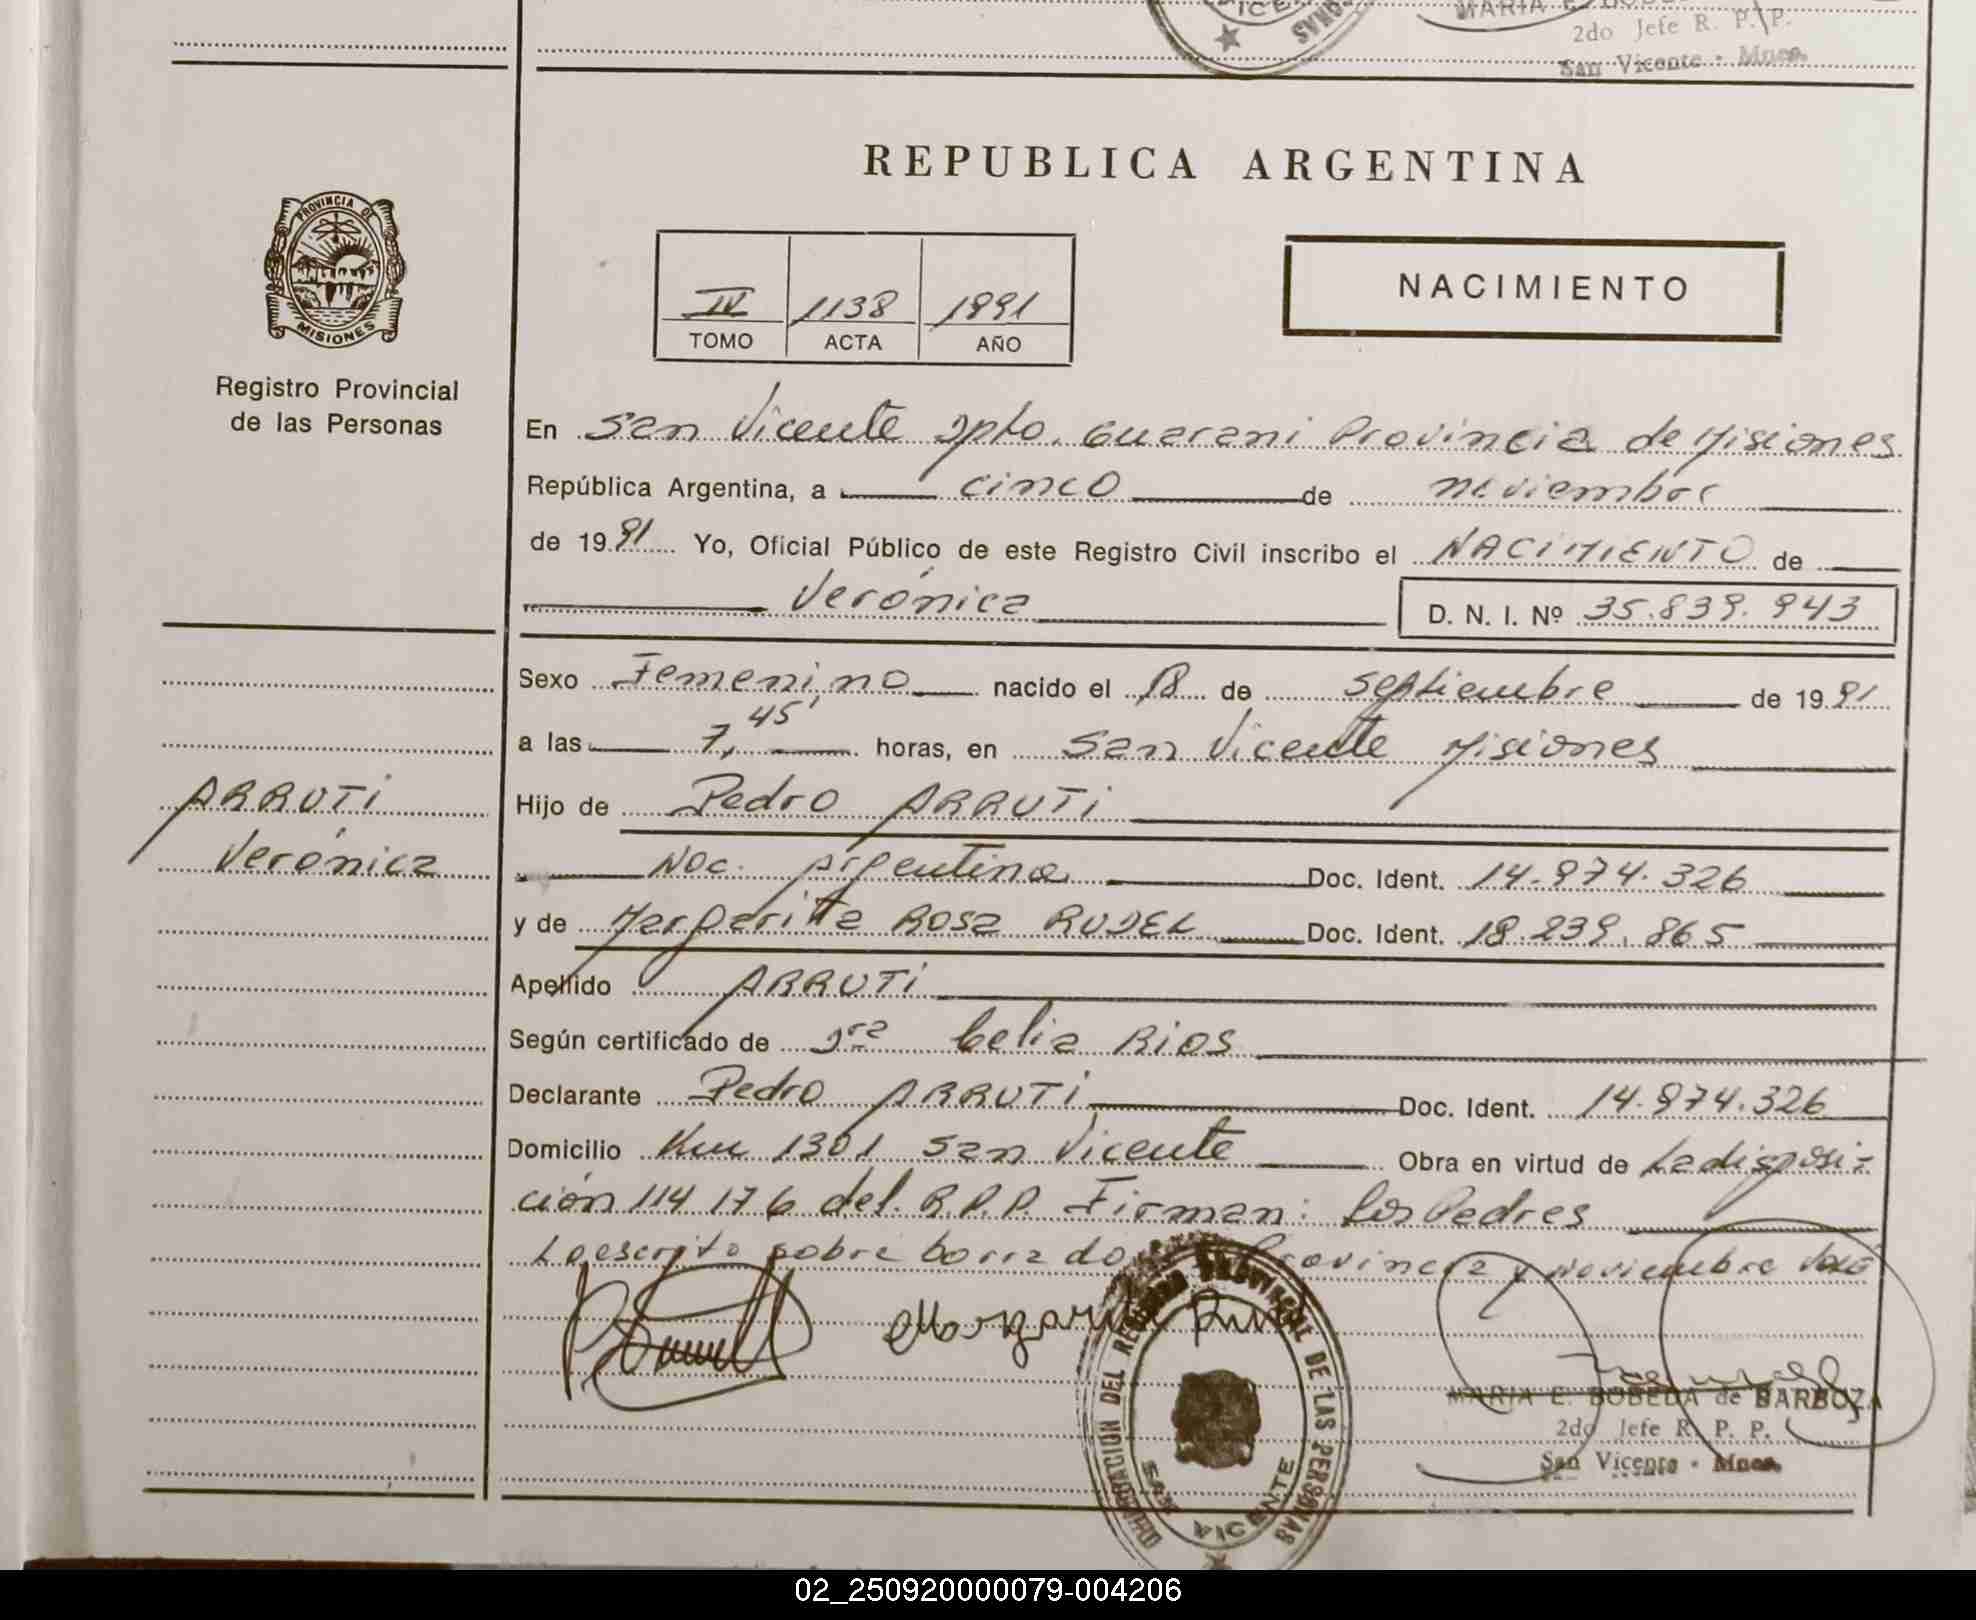 MARIA E. BOBEDA
2do Jefe R. P. P.
San Vicente - Mnes.
REPUBLICA ARGENTINA
PROVINCIA DE
MISIONES
Registro Provincial
de las Personas
IV 1138 1991
TOMO ACTA AÑO
NACIMIENTO
En San Vicente Dpto. Guarani Provincia de Misiones
República Argentina, a cinco de noviembre
de 1991 Yo, Oficial Público de este Registro Civil inscribo el NACIMIENTO de
Verónica D. N. I. Nº 35.839.943
Sexo Femenino nacido el 18 de septiembre de 1991
a las 7,45' horas, en San Vicente Misiones
ARRUTI
Verónica
Hijo de Pedro ARRUTI
Nac. Argentina Doc. Ident. 14.974.326
y de Margarita Rosa RUDEL Doc. Ident. 18.239.865
Apellido ARRUTI
Según certificado de Dra Celia Rios
Declarante Pedro ARRUTI Doc. Ident. 14.974.326
Domicilio Km 1301 San Vicente Obra en virtud de La disposi-
ción 114 176 del R.P.P. Firman: Los Padres
Lo escrito sobre borrado Provincia y noviembre Vale
Margarita
REGISTRO PROVINCIAL DE LAS PERSONAS
SAN VICENTE
MARIA E. BOBEDA de BARBOZA
2do Jefe R. P. P.
San Vicente - Mnes.
02_250920000079-004206